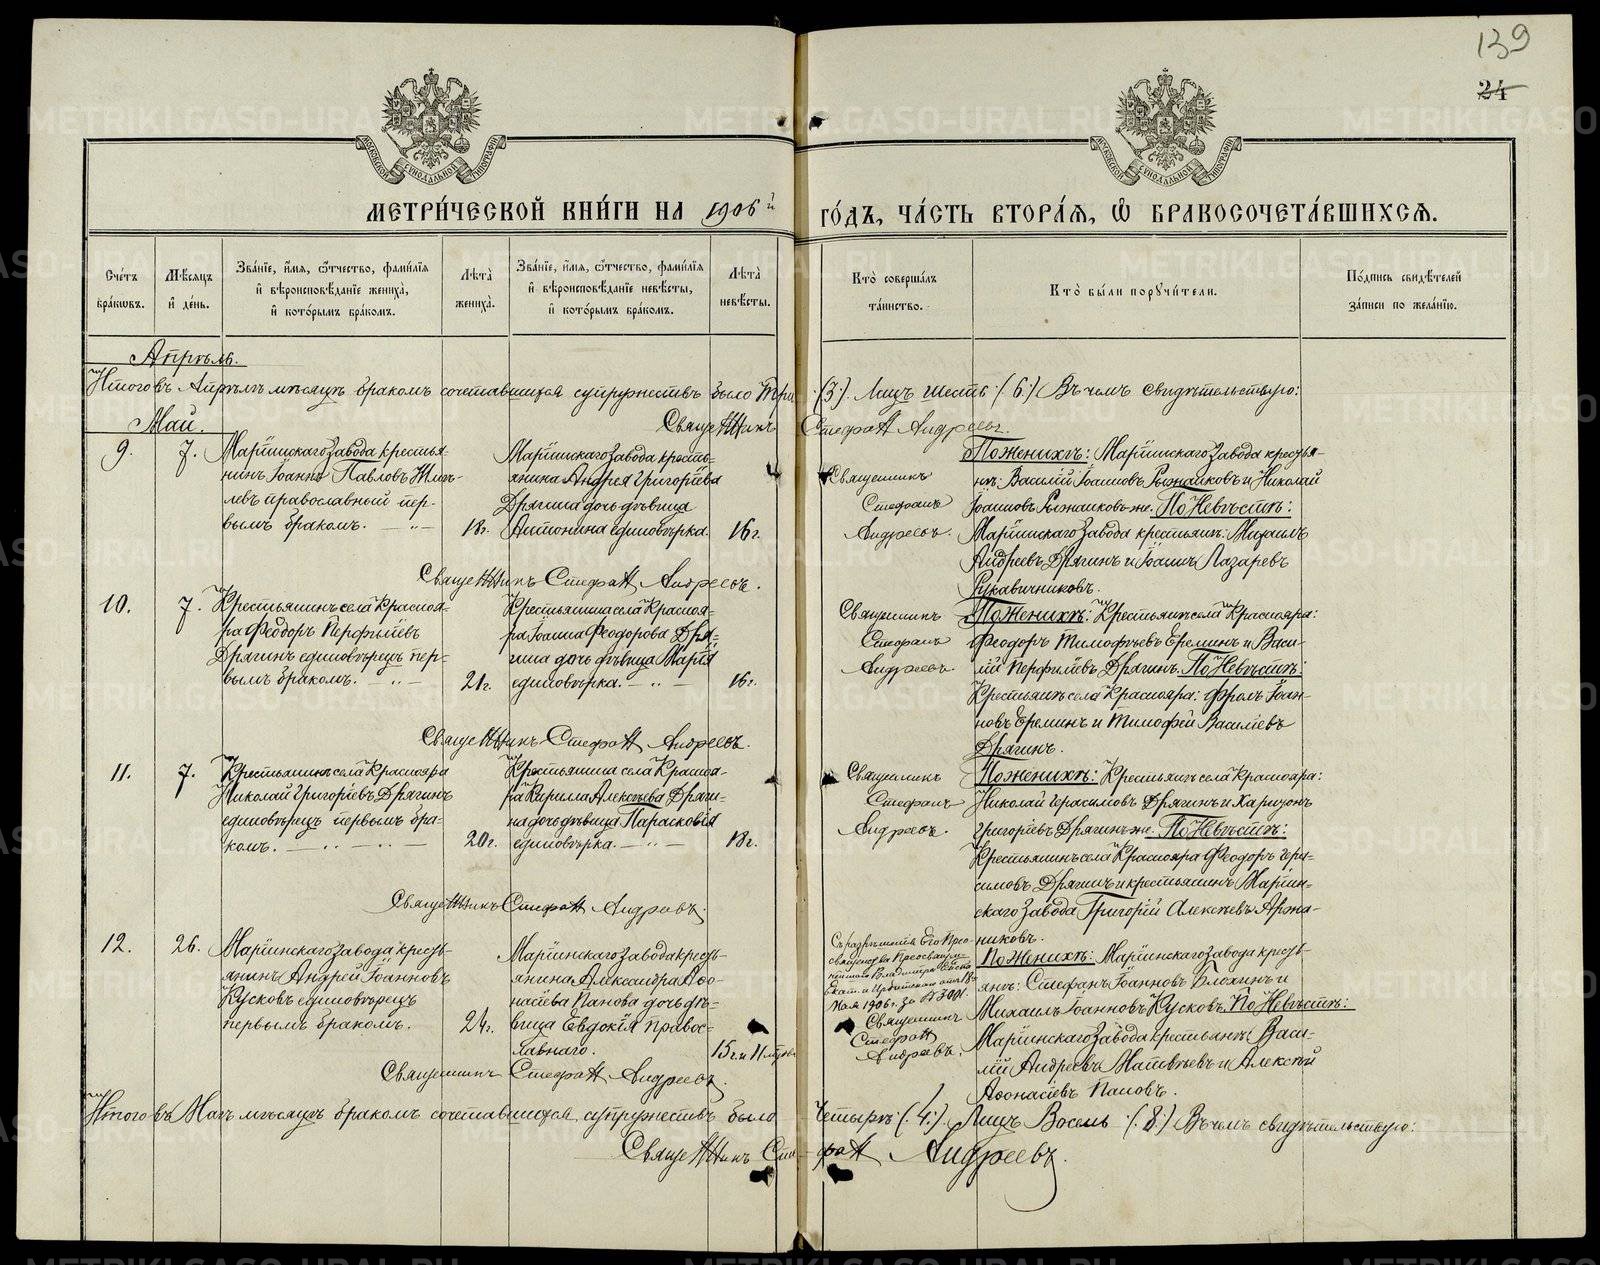 139
24
МЕТРИ́ЧЕСКОЙ КНИ́ГИ НА 1906й ГО́ДЪ, ЧА́СТЬ ВТОРА́Я, Ѡ БРАКОСОЧЕТА́ВШИХСЯ.
Сче́тъ бра́ковъ.
Мѣ́сяцъ и де́нь.
Зва́нїе, и́мя, ѻ́тчество, фами́лїя
и вѣроисповѣ́данїе жениха̀,
и кото́рымъ бра́комъ.
Лѣта̀ жениха̀.
Зва́нїе, и́мя, ѻ́тчество, фами́лїя
и вѣроисповѣ́данїе невѣ́сты,
и кото́рымъ бра́комъ.
Лѣта̀ невѣ́сты.
Кто̀ соверша́лъ та́инство.
Кто̀ бы́ли порꙋчи́тели.
По́дпись свидѣ́телей
за́писи по жела́нїю.
Апрѣль.
Итого въ Апрѣлѣ мѣсяцѣ бракомъ сочетавшихся супружествъ было три (3). Лицъ шесть (6). Въ чемъ свидѣтельствую:
Священникъ Стефанъ Андреевъ.
Май.
9.
7.
Маріинскаго завода крестья-
нинъ Іоаннъ Павловъ
православный пер-
вымъ бракомъ.
18г.
Маріинскаго завода кресть-
янина Андрея Григоріева
Дрягина дочь дѣвица
Антонина единовѣрка.
16г.
Священникъ
Стефанъ
Андреевъ.
По женихѣ: Маріинскаго завода крестья-
не: Василій Іоанновъ Рыжанковъ и Николай
Іоанновъ Рыжанковъ же. По невѣстѣ:
Маріинскаго завода крестьяне: Михаилъ
Андреевъ Дрягинъ и Іоаннъ Лазаревъ
Рукавичниковъ.
Священникъ Стефанъ Андреевъ.
10.
7.
Крестьянинъ села Краснояр-
ра Феодоръ Перфиліевъ
Дрягинъ единовѣрецъ пер-
вымъ бракомъ.
21г.
Крестьянина села Краснoя-
ра Іоанна Феодорова Дря-
гина дочь дѣвица Марія
единовѣрка.
16г.
Священникъ
Стефанъ
Андреевъ
По женихѣ: Крестьяне села Краснояра:
Феодоръ Тимофѣевъ Ереминъ и Васи-
лій Перфиліевъ Дрягинъ. По невѣстѣ:
Крестьяне села Краснояра: Фролъ Іоан-
новъ Ереминъ и Тимофей Васильевъ
Дрягинъ.
Священникъ Стефанъ Андреевъ.
11.
7.
Крестьянинъ села Краснояра
Николай Григоріевъ Дрягинъ
единовѣрецъ первымъ бра-
комъ.
20г.
Крестьянина села Красноя-
ра Кирилла Алексѣева Дряги-
на дочь дѣвица Парасковія
единовѣрка.
18г.
Священникъ
Стефанъ
Андреевъ.
По женихѣ: Крестьяне села Краснояра:
Николай Герасимовъ Дрягинъ и Харитонъ
Григоріевъ Дрягинъ же. По невѣстѣ:
Крестьянинъ села Краснояра Феодоръ Гера-
симовъ Дрягинъ и крестьянинъ Маріин-
скаго завода Григорій Алексѣевъ Аржа-
никовъ.
Священникъ Стефанъ Андреевъ.
12.
26.
Маріинскаго завода кресть-
янинъ Андрей Іоанновъ
Кусковъ единовѣрецъ
первымъ бракомъ.
24г.
Маріинскаго завода кресть-
янина Александра Аѳо-
насіева Панова дочь дѣ-
вица Евдокія право-
славнаго.
15г. и 11
Съ разрѣшенія Его Прео-
священства Преосвящен-
нѣйшаго Владиміра Еписк.
Екат. и Ирбитскаго отъ 18
Мая 1906г. за № 3001.
Священникъ
Стефанъ
Андреевъ.
По женихѣ: Маріинскаго завода кресть-
яне: Стефанъ Іоанновъ и
Михаилъ Іоанновъ Кусковъ. По невѣстѣ:
Маріинскаго завода крестьяне: Васи-
лій Андреевъ Матвѣевъ и Алексѣй
Аѳонасіевъ Пановъ.
Священникъ Стефанъ Андреевъ.
Итого въ Маѣ мѣсяцѣ бракомъ сочетавшихся супружествъ было четыре (4). Лицъ Восемь (8). Въ чемъ свидѣтельствую:
Священникъ Стефанъ Андреевъ.
METRIKI.GASO-URAL.RU